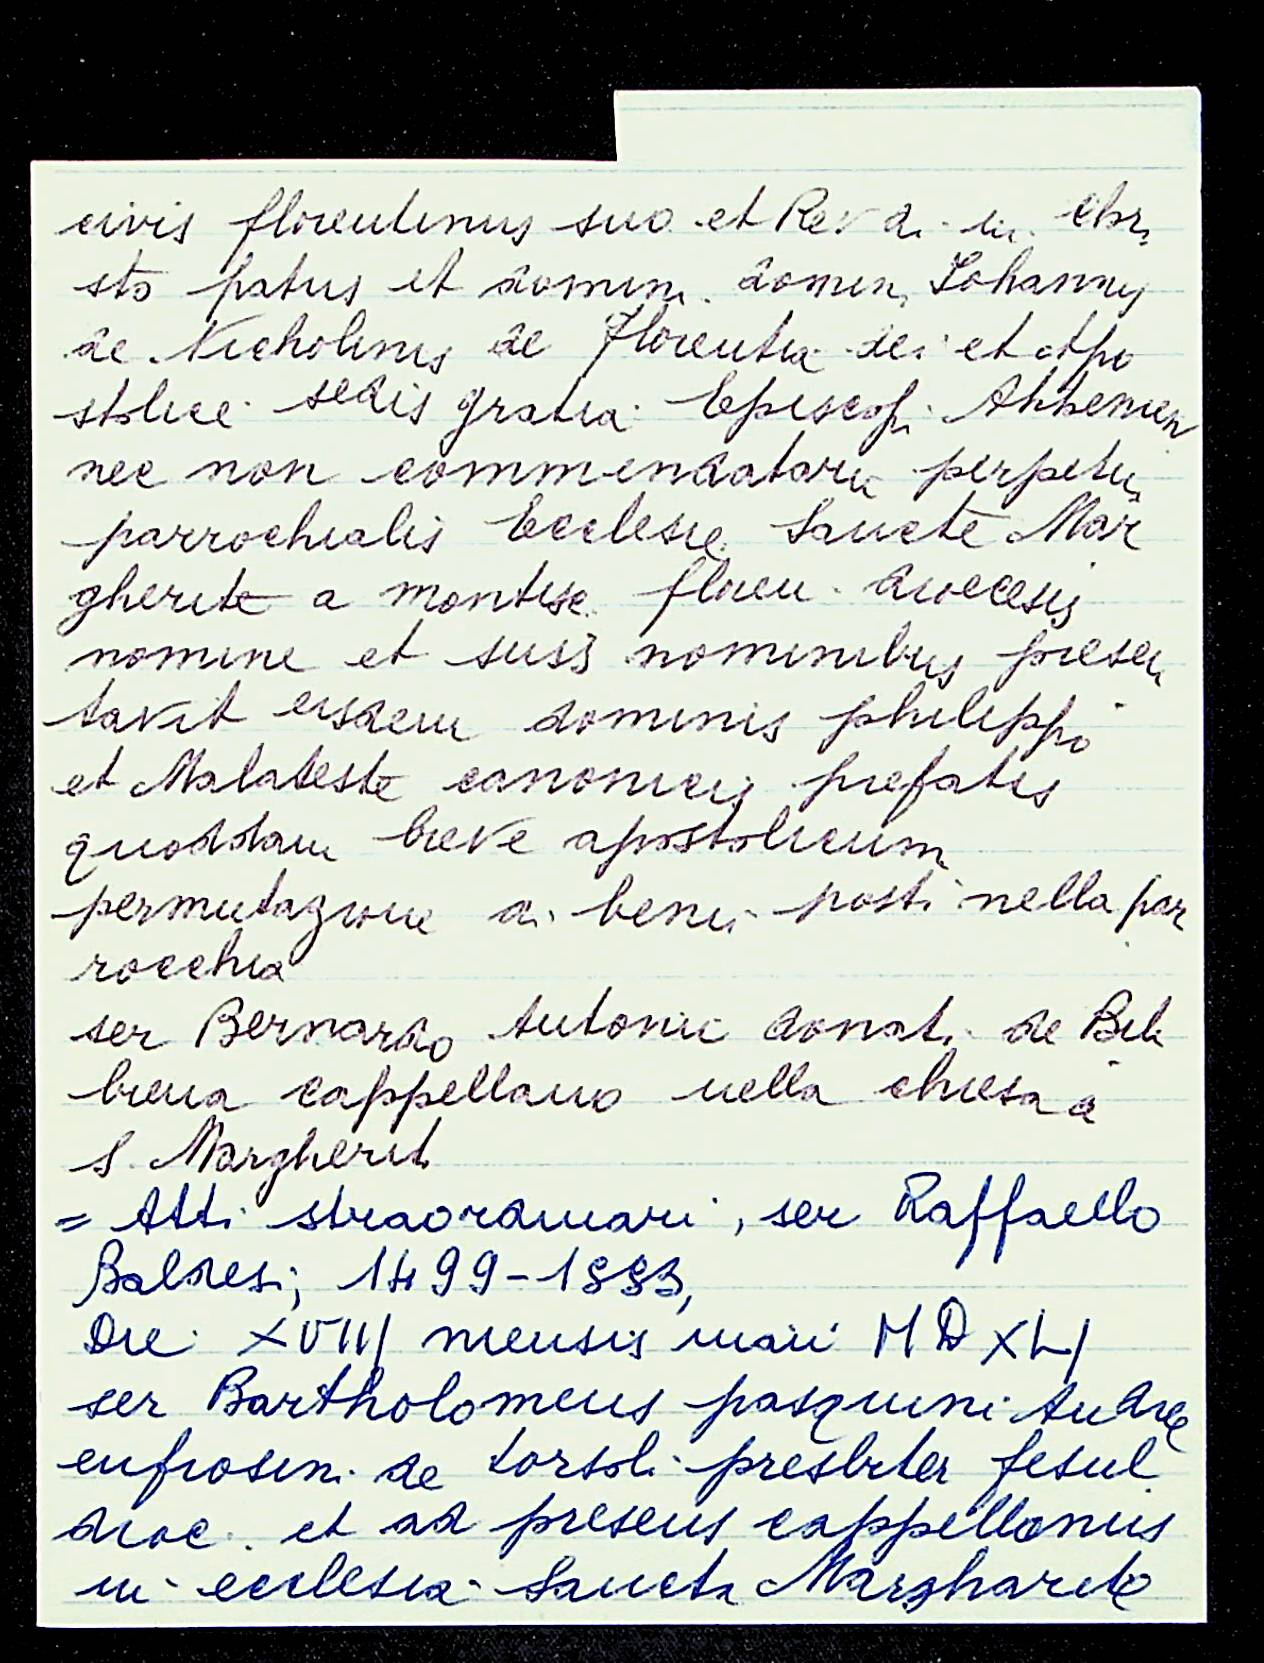 civis florentinus suo et Rev di in Chri
sto patris et domini domini Johannis
de Nicholinis de Florentia dei et Apo
stolice sedis gratia Episcopi Athenien
nec non commendatarii perpetui
parrochialis Ecclesie Sancte Mar
gherite a montisc. floren. diocesis
nomine et suis nominibus presen
tavit eisdem dominis philippo
et Malateste canonicis prefatis
quoddam breve apostolicum
permutazione di beni posti nella par
rocchia
ser Bernardo Antonii donati de Bib
biena cappellano nella chiesa di
S. Margherit.
= Atti straordinari, ser Raffaello
Baldesi, 1499-1553,
Die XVIII mensis maii MDXLI
ser Bartholomeus pasquini Andree
eufrosini de torsoli presbiter fesul
dioc. et ad presens cappellanus
in ecclesia Sancta Margharita